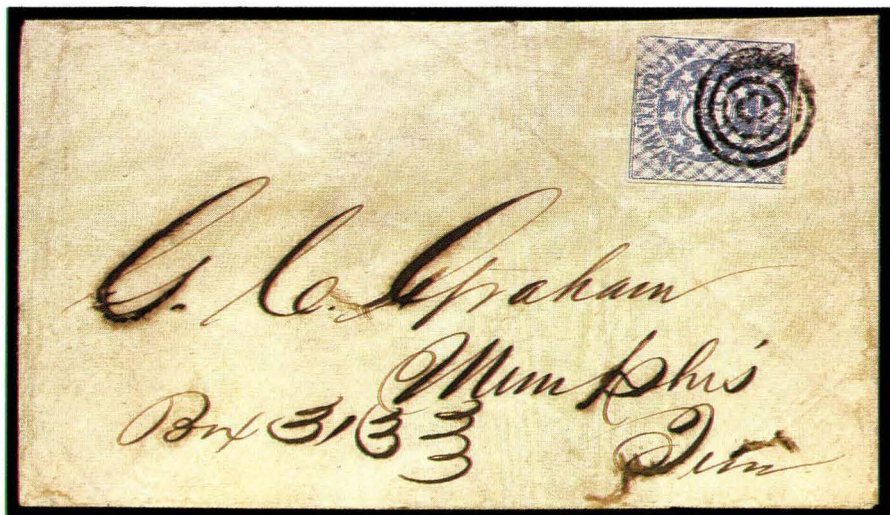 G. C. Graham
Memphis
Box 313
Tenn